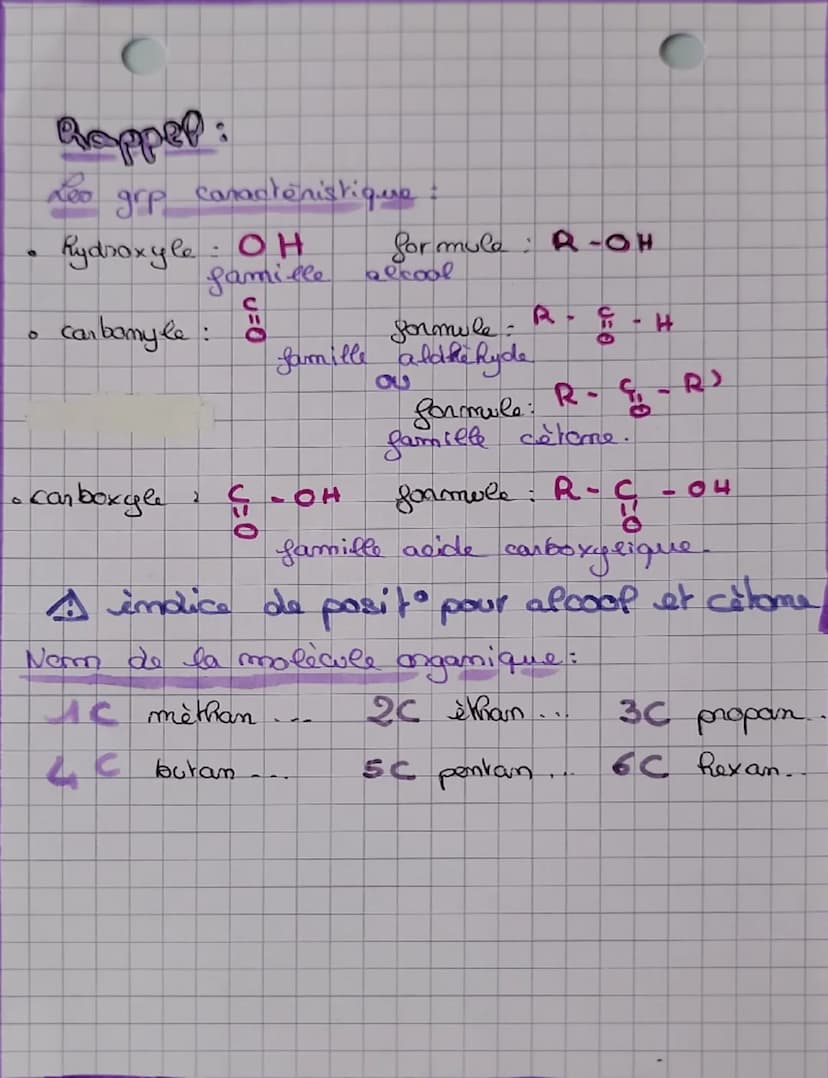 Rappel :
Les grp caractéristique :
• hydroxyle : OH formule : R - OH
famille alcool
• carbonyle : C=O formule : R - C=O - H
famille aldhéhyde
ou
formule : R - C=O - R'
famille cétone.
• carboxyle : C=O - OH formule : R - C=O - OH
famille acide carboxylique.
⚠ indice de posit° pour alcool et cétone
Nom de la molécule organique :
1C méthan ... 2C éthan ... 3C propan ..
4C butan ... 5C pentan ... 6C hexan ..